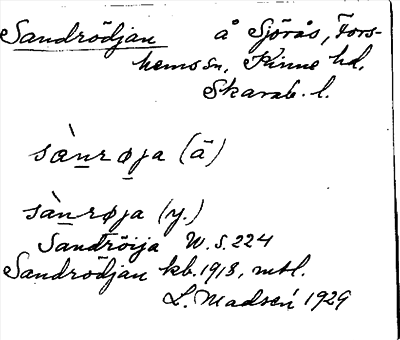 Sandrödjan å Sjörås, Fors-
hems sn, Kinne hd,
Skarab. l.
sæ̀nrøja (ä)
sànrøja (y.)
Sandröija W. S. 224
Sandrödjan kb. 1918, mtl.
L. Madsén 1929